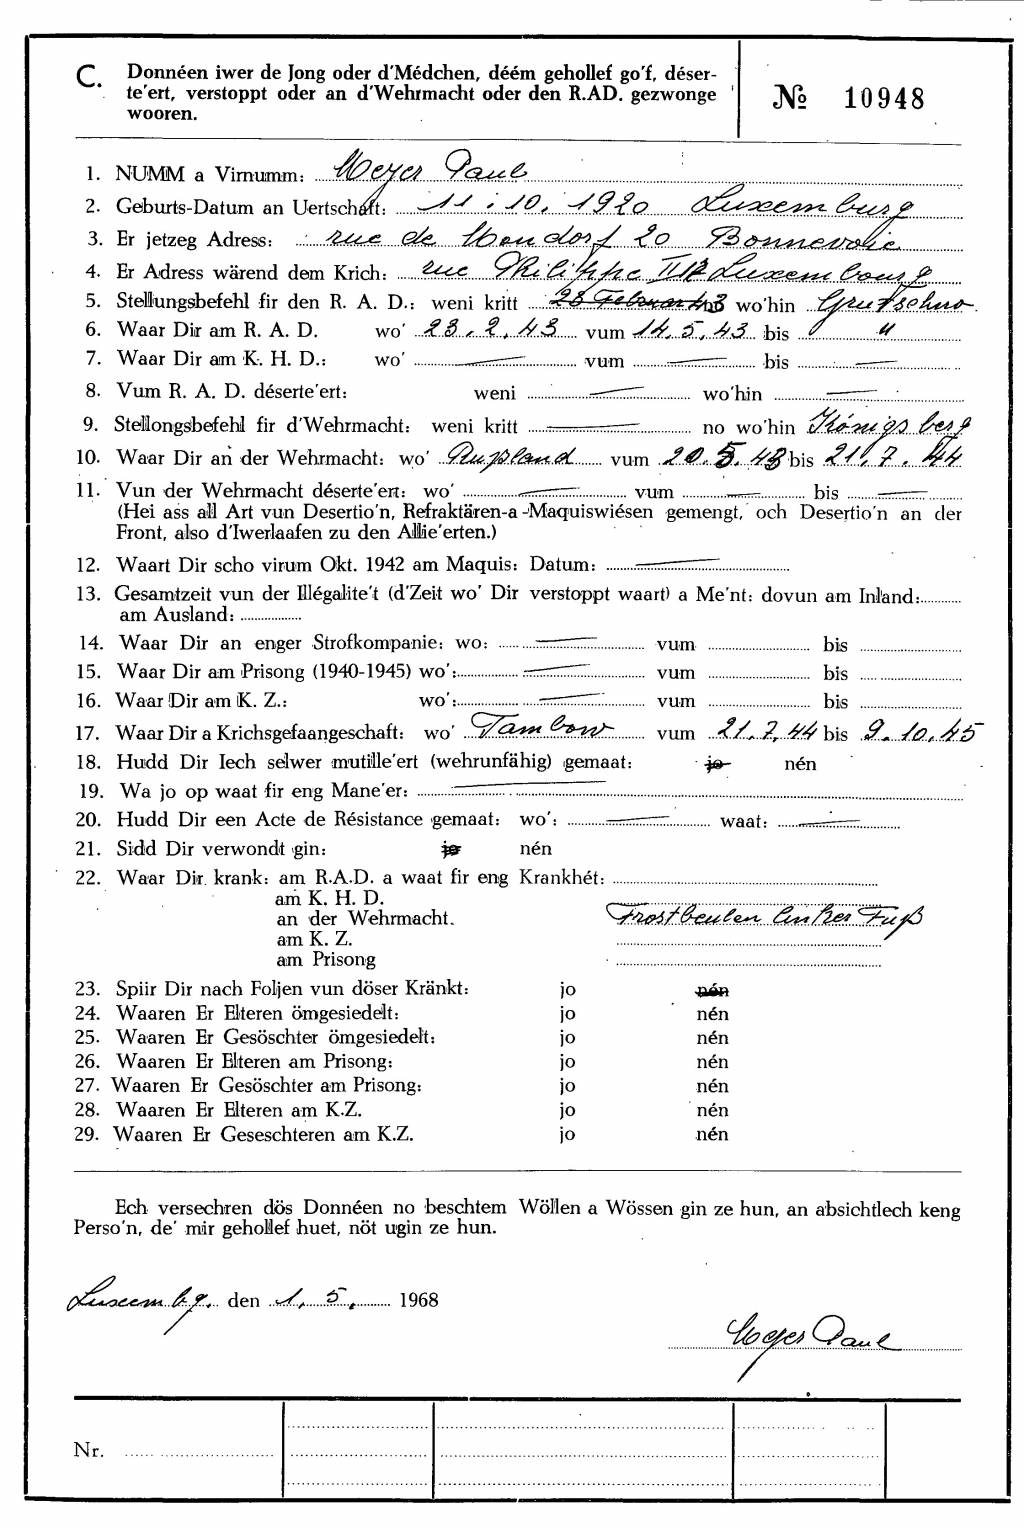 C. Donnéen iwer de Jong oder d'Médchen, déém gehollef go'f, déser-
te'ert, verstoppt oder an d'Wehrmacht oder den R.AD. gezwonge
wooren.
№ 10948
1. NUMM a Virnumm: Meyer Paul
2. Geburts-Datum an Uertschaft: 11.10.1920 Luxemburg
3. Er jetzeg Adress: rue de Mondorf 20 Bonnevoie
4. Er Adress wärend dem Krich: rue Philippe II 12 Luxembourg
5. Stellungsbefehl fir den R. A. D.: weni kritt 23 Februar 43 wo'hin
6. Waar Dir am R. A. D. wo' 23.2.43 vum 14.5.43 bis "
7. Waar Dir am K. H. D.: wo' — vum — bis —
8. Vum R. A. D. déserte'ert: weni — wo'hin —
9. Stellongsbefehl fir d'Wehrmacht: weni kritt — no wo'hin Königsberg
10. Waar Dir an der Wehrmacht: wo' Rußland vum 20.5.43 bis 21.7.44
11. Vun der Wehrmacht déserte'ert: wo' — vum — bis —
(Hei ass all Art vun Desertio'n, Refraktären-a-Maquiswiésen gemengt, och Desertio'n an der
Front, also d'Iwerlaafen zu den Allie'erten.)
12. Waart Dir scho virum Okt. 1942 am Maquis: Datum: —
13. Gesamtzeit vun der Illégalite't (d'Zeit wo' Dir verstoppt waart) a Me'nt: dovun am Inland:
am Ausland:
14. Waar Dir an enger Strofkompanie: wo: — vum bis
15. Waar Dir am Prisong (1940-1945) wo': — vum bis
16. Waar Dir am K. Z.: wo': — vum bis
17. Waar Dir a Krichsgefaangeschaft: wo' Tambow vum 21.7.44 bis 9.10.45
18. Hudd Dir Iech selwer mutille'ert (wehrunfähig) gemaat: jo nén
19. Wa jo op waat fir eng Mane'er: —
20. Hudd Dir een Acte de Résistance gemaat: wo': — waat: —
21. Sidd Dir verwondt gin: jo nén
22. Waar Dir krank: am R.A.D. a waat fir eng Krankhét:
am K. H. D.
an der Wehrmacht. Frostbeulen linker Fuß
am K. Z.
am Prisong
23. Spiir Dir nach Foljen vun döser Kränkt: jo nén
24. Waaren Er Elteren ömgesiedelt: jo nén
25. Waaren Er Gesöschter ömgesiedelt: jo nén
26. Waaren Er Elteren am Prisong: jo nén
27. Waaren Er Gesöschter am Prisong: jo nén
28. Waaren Er Elteren am K.Z. jo nén
29. Waaren Er Geseschteren am K.Z. jo nén
Ech versechren dös Donnéen no beschtem Wöllen a Wössen gin ze hun, an absichtlech keng
Perso'n, de' mir gehollef huet, nöt ugin ze hun.
Luxembg. den 1. 5. 1968
Meyer Paul
Nr.